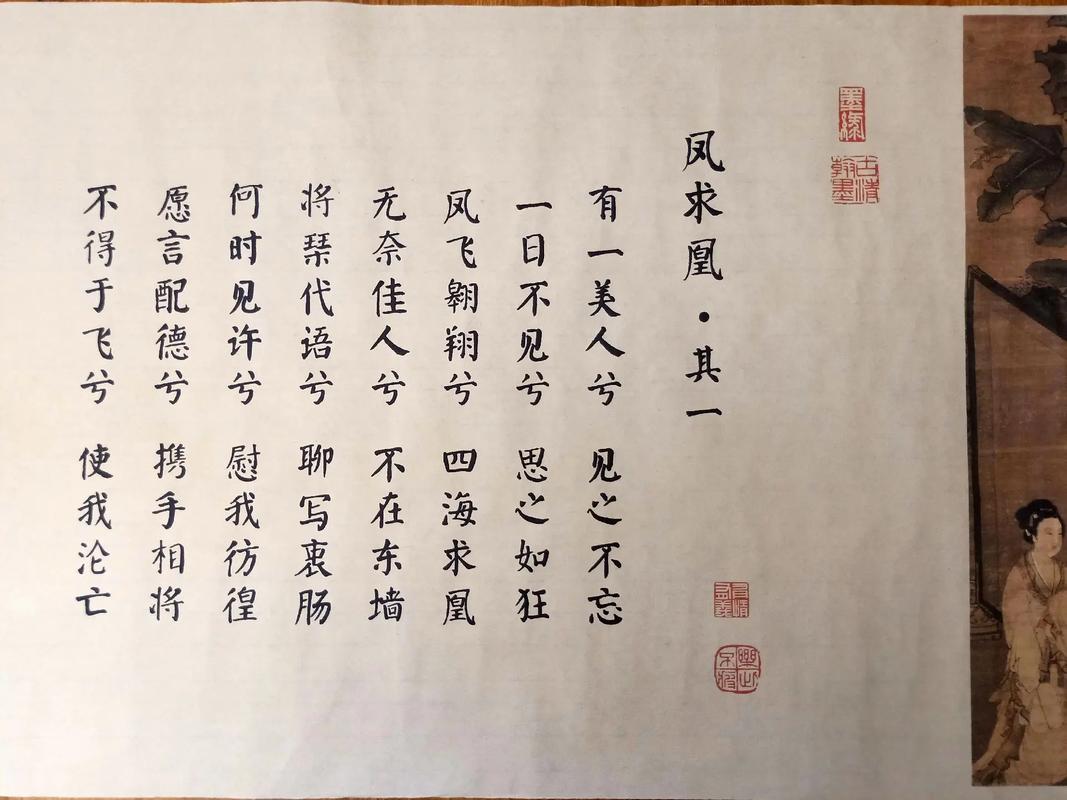 墨緣
古清翰墨
凤求凰·其一
有情有義
樂此不疲
有一美人兮 见之不忘
一日不见兮 思之如狂
凤飞翱翔兮 四海求凰
无奈佳人兮 不在东墙
将琹代语兮 聊写衷肠
何时见许兮 慰我彷徨
愿言配德兮 携手相将
不得于飞兮 使我沦亡